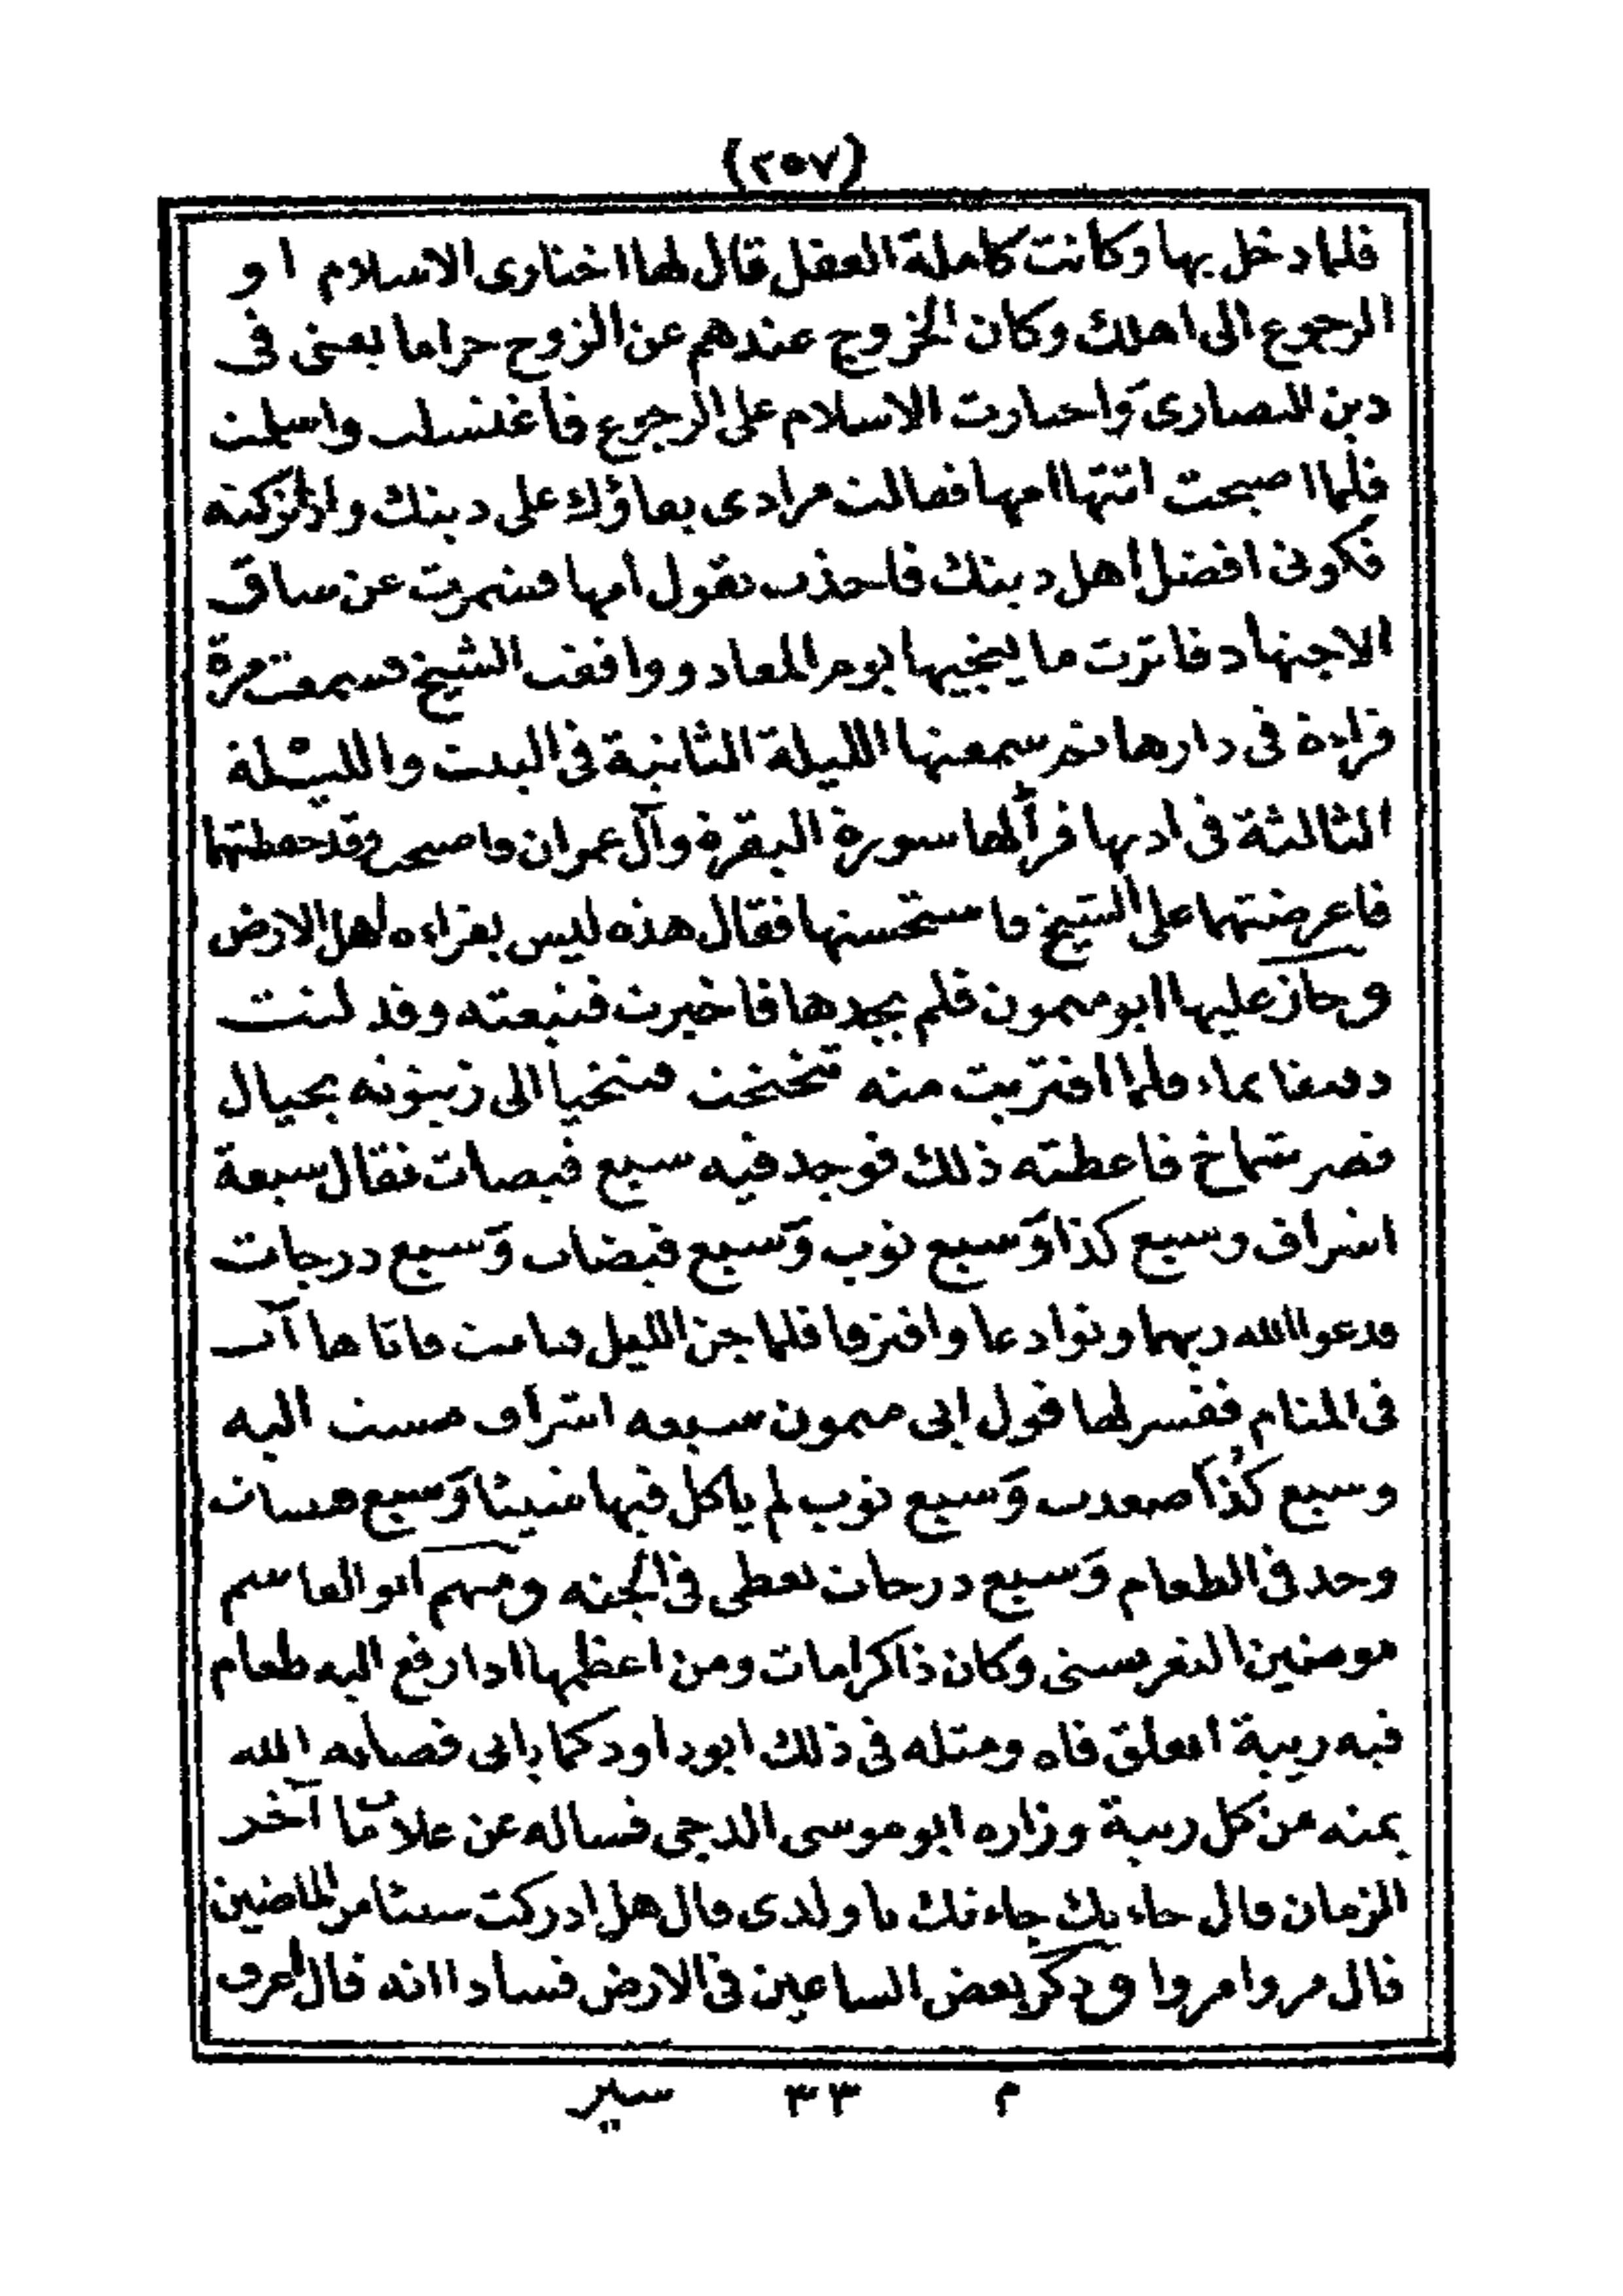 (٢٥٧)
فلما دخل بها وكانت كاملة العقل قال لها اختارى الاسلام او
الرجوع الى اهلك وكان الخروج عندهم عن الزوج حراما يعنى فى
دين النصارى واختارت الاسلام على الرجوع فاغتسلت واسلمت
فلما اصبحت اتتها امها فقالت مرادى بقاؤك على دينك واذ تركته
فكونى افضل اهل دينك فاخذت بقول امها فشمرت عن ساق
الاجتهاد فاثرت ما ينجيها يوم المعاد ووافقت الشيخ فسمعت مرة
قراءة فى دارها ثم سمعتها الليلة الثانية فى البيت والليلة
الثالثة فى اذنها قرأ لها سورة البقرة وآل عمران فاصبحت وقد حفظتهما
فاعرضتهما على الشيخ فاستحسنها فقال هذه ليس بقراءة اهل الارض
وجاز عليها ابو ميمون فلم يجدها فاخبرت فتبعته وقد لتت
دقيقا بماء فلما اقتربت منه تنحنحت فتنحيا الى زيتونه بحيال
قصر شماخ فاعطته ذلك فوجد فيه سبع قبصات فقال سبعة
اشراف وسبع كذا وسبع نوب وسبع قبضات وسبع درجات
فدعوا الله ربهما وتوادعا وافترقا فلما جن الليل فنامت فاتاها آت
فى المنام ففسر لها قول ابى ميمون سبعه اشراف مشت اليه
وسبع كذا صعدت وسبع نوب لم ياكل فيها شيئا وسبع قبضات
وجد فى الطعام وسبع درجات تعطى فى الجنه ومنهم ابو القاسم
مومنين النغرسنى وكان ذا كرامات ومن اعظمها اذا رفع اليه طعام
فيه ريبة انغلق فاه ومثله فى ذلك ابو داود كما ياتى فصانه الله
بمنه من كل ريبة وزاره ابو موسى الدجى فساله عن علامات آخر
الزمان قال جاءتك جاءتك يا ولدى قال هل ادركت شيئا من الماضين
قال مروا مروا وذكر بعض الساعين فى الارض فسادا انه قال اعرف
م ٣٣ سير